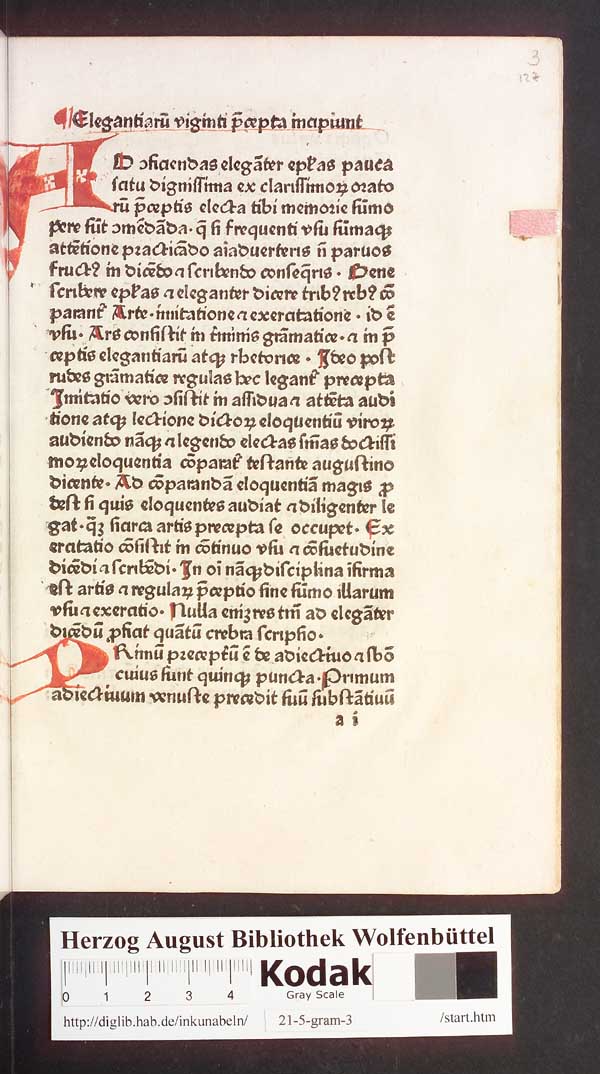 3
127
¶ Elegantiarū viginti p̄cepta incipiunt
AD ↄficiendas elegāter epl̄as pauca
scitu dignissima ex clarissimoꝝ orato
rū p̄ceptis electa tibi memorie sūmo
pere sūt ↄmēdāda · q̄ si frequenti vsu sūmaqꝫ
attētione practicādo aīaduerteris nō paruos
fructꝰ in dicēdo ⁊ scribendo conseq̄ris · Bene
scribere epl̄as ⁊ eleganter dicere tribꝰ rebꝰ cō
parantᷣ Arte · imitatione ⁊ exercitatione · id ē
vsu · Ars consistit in t̄minis grāmatice · ⁊ in p̄
ceptis elegantiarū atqꝫ rhetorice · Ideo post
rudes grāmatice regulas hec legantᷣ precepta
Imitatio vero ↄsistit in assidua ⁊ attēta audi
tione atqꝫ lectione dictoꝝ eloquentiū viroꝝ
audiendo nāqꝫ ⁊ legendo electas sn̄ias doctissi
moꝝ eloquentia cōparatᷣ testante augustino
dicente · Ad cōparandā eloquentiā magis ꝓ
dest si quis eloquentes audiat ⁊ diligenter le
gat · qꝫ̄ si circa artis precepta se occupet · Ex
ercitatio cōsistit in cōtinuo vsu ⁊ cōsuetudine
dicēdi ⁊ scribēdi · In oī nāqꝫ disciplina īfirma
est artis ⁊ regulaꝝ p̄ceptio sine sūmo illarum
vsu ⁊ exercitio · Nulla enīꝫ res tm̄ ad elegāter
dicēdū ꝓficit quātū crebra scriptio ·
PRimū preceptū ē de adiectiuo ⁊ sb̄o
cuius sunt quinqꝫ puncta · Primum
adiectiuum venuste precedit suū substātiuū
a i
Herzog August Bibliothek Wolfenbüttel
0 1 2 3 4
Kodak
Gray Scale
http://diglib.hab.de/inkunabeln/ 21-5-gram-3 /start.htm